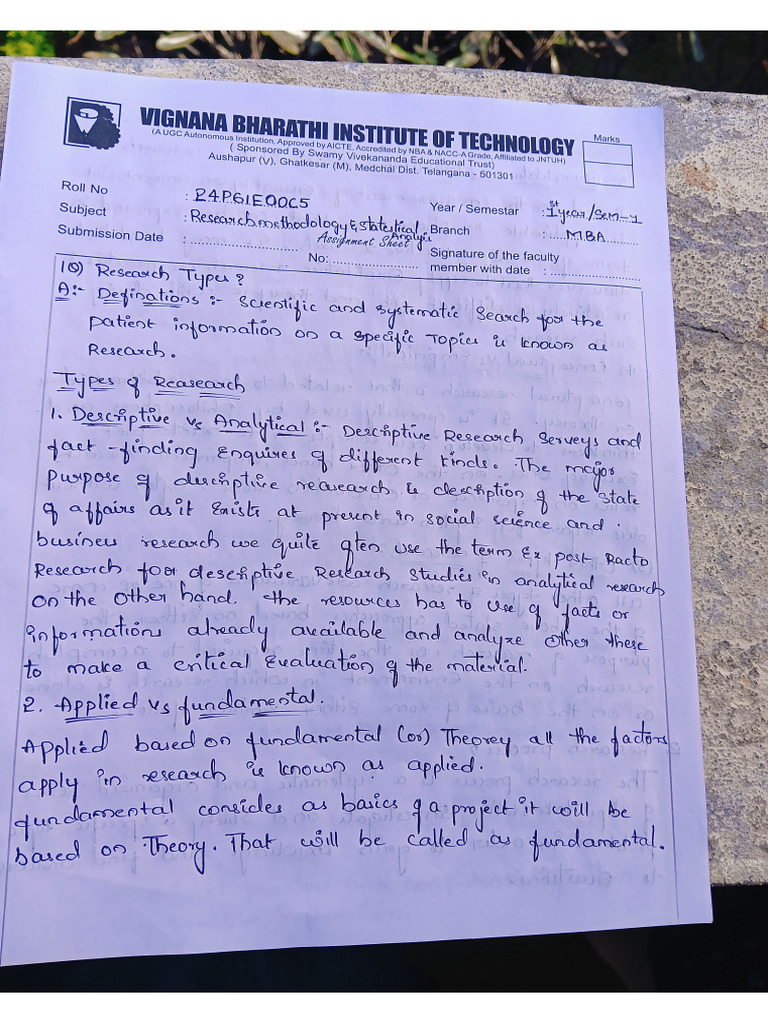 VIGNANA BHARATHI INSTITUTE OF TECHNOLOGY
(A UGC Autonomous Institution, Approved by AICTE, Accredited by NBA & NACC-A Grade, Affiliated to JNTUH)
( Sponsored By Swamy Vivekananda Educational Trust)
Aushapur (V), Ghatkesar (M), Medchal Dist. Telangana - 501301
Marks
Roll No : 24P61E00C5
Year / Semestar : 1st year/Sem-1
Subject : Research methodology & Statestical Analysis
Branch : ..... MBA ..........
Submission Date : ..........................
Assignment Sheet
No: ......................
Signature of the faculty
member with date : ......................
1Q) Research Types?
A:- Definations :- Scientific and systematic Search for the
patient information on a specific Topic is known as
Research.
Types of Reasearch
1. Descriptive vs Analytical :- Descriptive Research Serveys and
fact-finding enquires of different kinds. The major
purpose of descriptive reasearch is description of the State
of affairs as it Exists at present in social science and
business research we quite often use the term Ex post Facto
Research foor descriptive Research Studies in analytical research
on the other hand. the resources has to use of facts or
informations already available and analyze other these
to make a critical Evaluation of the material.
2. Applied vs fundamental.
Applied based on fundamental (or) Theorey all the factors
apply in research is known as applied.
fundamental consides as basics of a project it will be
based on Theory. That will be called as fundamental.